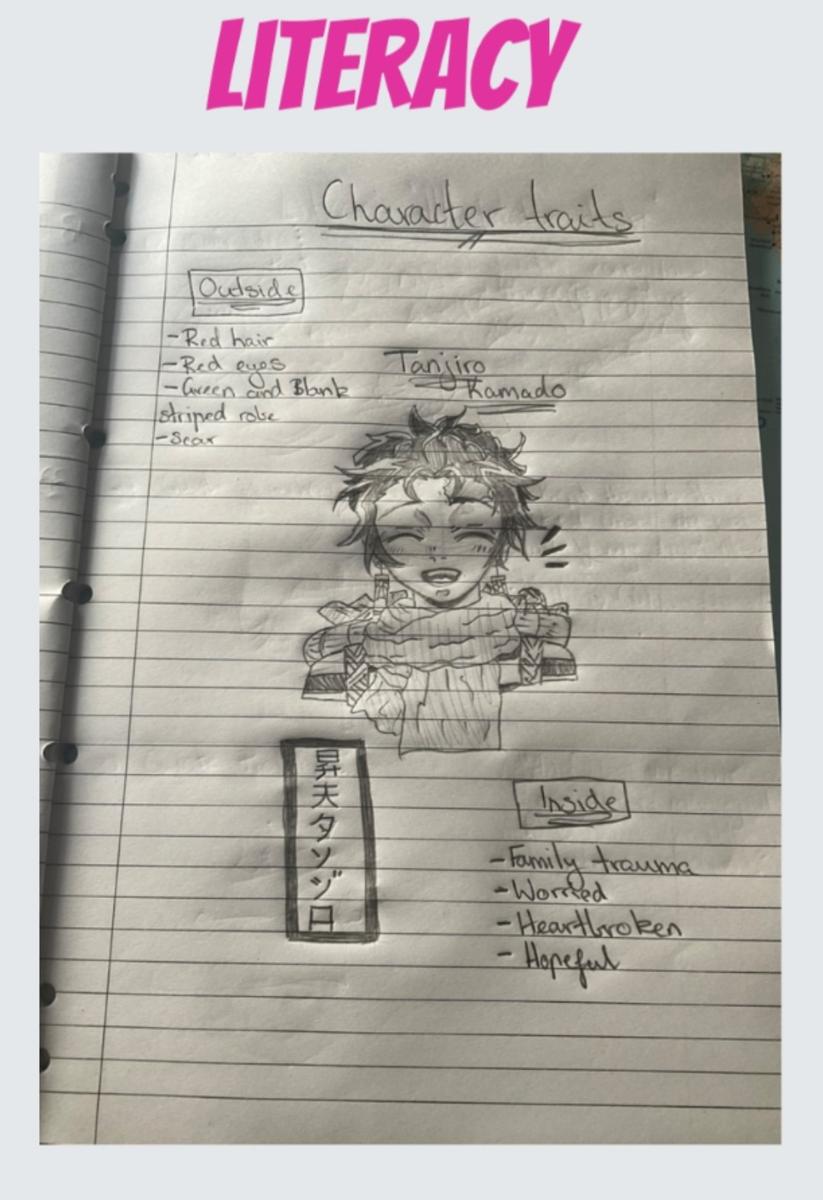 LITERACY
Character traits
Outside
-Red hair
-Red eyes
-Green and Blank
striped robe
-Scar
Tanjiro
Kamado
昇天タソゾロ
Inside
-Family trauma
-Worried
-Heartbroken
- Hopeful